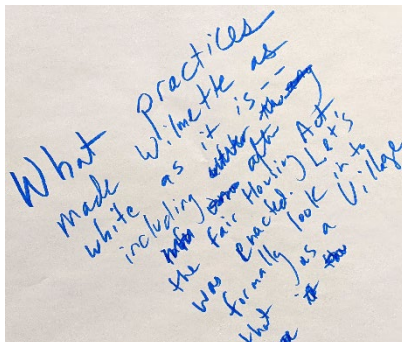 What Practices
made Wilmette as
white as it is --
including
after
the Fair Housing Act
was enacted. Let's
formally look into
that as a Village